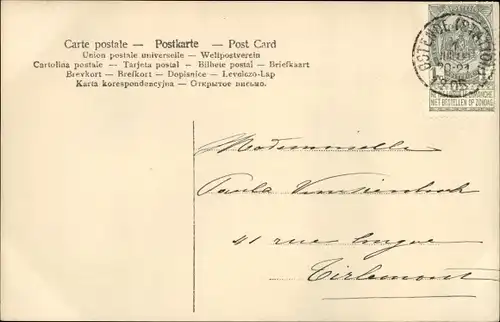 Carte postale — Postkarte — Post Card
Union postale universelle — Weltpostverein
Cartolina postale — Tarjeta postal — Bilhete postal — Briefkaart
Brevkort — Brefkort — Dopisnice — Levelező-Lap
Karta korespondencyjna — Открытое письмо.
OSTENDE (STATION)
NIET BESTELLEN OP ZONDAG
Mademoiselle
Paula
41 rue longue
Tirlemont